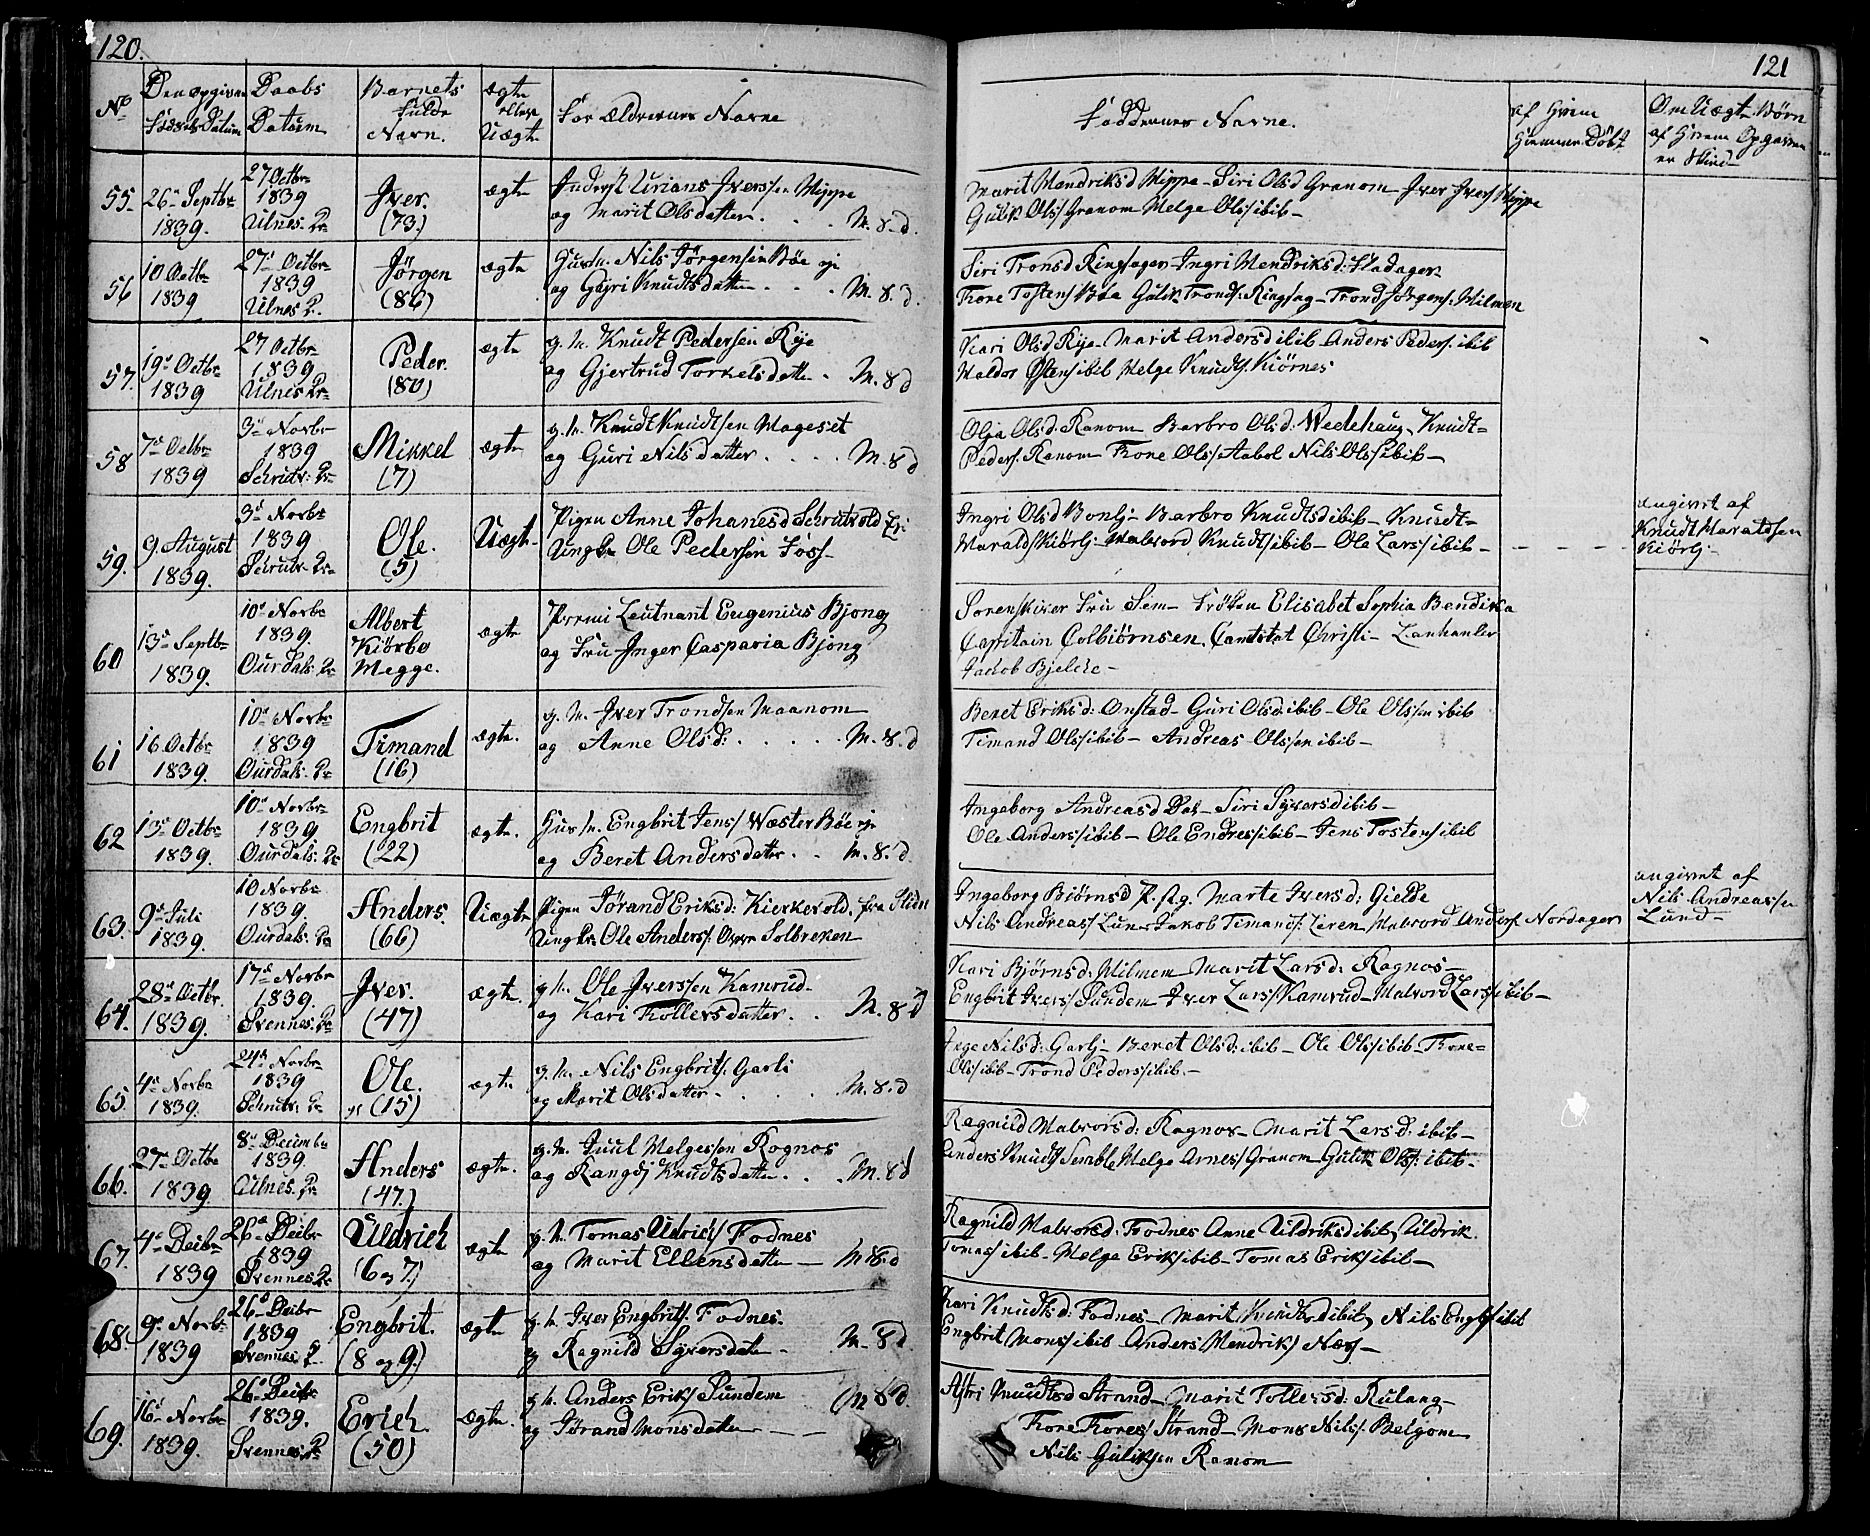 120.
121
No
Den opgivne
Fødsels Datum
Daabs
Datum
Barnets
fulde
Navn.
ægte
eller
Uægte
Forældrenes Navne
Faddernes Navne.
af Hvem
Hiemme Døbt
Om Uægte Børn
af Hvem Opgaven
er skeed
55. 26de Septbr 1839.
27 Octbr 1839 Ulnes Kr
Iver. (73.)
ægte
Iverssen Hippe
og Marit Olsdatter. . . M. 8. d.
Marit Hendriksd Hippe - Siri Olsd Granom - Iver Ivers/ Hippe
Gulik Ols/ Granom Helge Ols/ ibib -
56 10 Octbr 1839
27de Octbr 1839 Ulnes K.
Jörgen (86)
ægte
Husm. Nils Jörgensen Böe eje
og Gujri Knudtsdatter . . . M. 8. d.
Siri Tronsd Ringsager - Ingri Hendriksd:
Tore Tostens/ Böe Gulik Tronds: Ringsag - Trond Jörgens/ Hilmen
57. 19de Octbr 1839
27 Octbr 1839 Ulnes Kr
Peder. (80)
ægte
g. m. Knudt Pedersen Rye
og Gjertrud Torkelsdatter . M. 8 d
Kari Olsd Rye - Marit Andersd ibib - Anders Peders. ibib
Haldor Ostens/ ibib Helge Knudts/ Kiörnes
58 7de Octbr 1839
3de Novbr 1839 Schrutv: Kr
Mikkel (7)
ægte
g. m. Knudt Knudtsen Hageset
og Guri Nilsdatter . . . . M. 8 d
Olja Olsd. Ranom Barbro Olsd: Wedehaug, Knudt
Peders/ Ranom Tore Ols/ Aabol Nils Ols/ ibib -
59. 9. August 1839.
3de Novbr 1839 Schrutv Kr
Ole. (5)
Uægte
Pigen Anne Johanesd Schrutvold
Ungkr Ole Pedersen Foss
Ingri Olsd Bonlj - Barbro Knudtsd ibib - Knudt
Haralds/ Kiörlj - Halvord Knudts/ ibib - Ole Lars/ ibib -
angivet af
Knudt Haraldsen
Kiörlj -
60 13de Septbr 1839.
10de Novbr 1839. Ourdals: Kr
Albert
Kiörbo
Hegge.
ægte
Premi Leutnant Eugenius Bjong
og Fru Inger Casparia Bjong
Sorenskiver Fru Sem - Fröken Elisabet Sophia Bendixa
Capitain Colbiörnsen, Cantstat Christi -
Jacob Bjelche -
61 16 Octbr 1839.
10de Novbr 1839 Ourdals: Kr
Timand (16)
ægte.
g. m. Iver Trondsen Haanom
og Anne Olsd: . . . . . M. 8. d
Beret Eriksd: Onstad - Guri Olsd: ibib - Ole Olssen ibib
Timand Ols/ ibib - Andreas Olssen ibib -
62 13de Octbr 1839.
10de Novbr 1839 Ourdals: Kr
Engbrit (22)
ægte.
Husm. Engbrit Jens/ Wæster Böe eje
og Beret Andersdatter . . M. 8. d.
Ingeborg Andreasd Dal - Siri Syversd ibib -
Ole Anders/ ibib - Ole Endres/ ibib - Jens Tostens/ ibib
63. 9de Juli 1839.
10 Novbr 1839. Ourdals: Kr
Anders. (66)
Uægte
Pigen Jörand Eriksd: Kierkevold, fra Slidre
Ungkr Ole Anders/: Solbreken
Ingeborg Biörnsd Marte Iversd: Gielde
Nils Andreas/ Lund Jakob Timans/: Leren Halvord Anders/ Nordager
angivet af
Nils Andreassen
Lund -
64. 28de Octbr. 1839.
17de Novbr 1839. Svennes: Kr
Iver. (47)
ægte.
g. m. Ole Iverssen Kamrud
og Kari Tollersdatter . . M. 8 d
Kari Björnsd: Hilmen - Marit Larsd: Ragnos -
Engbrit Ivers/ Sundem - Iver Lars/ Kamrud - Halvord Lars/ ibib -
65. 4de Novbr 1839.
24de Novbr 1839 Schrutv: Kr
Ole. (15)
ægte
g. m. Nils Engbrits/ Garli
og Marit Olsdatter . . . . M. 8. d
Inge Nilsd: Garlj - Beret Olsd: ibib - Ole Ols/ ibib - Tore
Ols/ ibib - Trond Peders/ ibib. -
66. 27de Octbr 1839.
8de Decembr 1839. Ulnes. Kr
Anders (47.)
ægte.
g. m. Juul Helgessen Rognos
og Rangdj Knudtsdatter . . M. 8 d
Ragnild Halvorsd: Ragnos - Marit Larsd: ibib -
Anders Knudts/ Semble Helge Arnes/ Granom Gulik Ols/: ibib -
67. 4de Decbr 1839
26de Decbr 1839 Svennes Kr
Uldrich (6 og 7.)
ægte
g. m. Tomas Uldrich/ Fodnes
og Marit Ellensdatter - M. 8. d
Ragnild Halvorsd: Fodnes Anne Uldriksd ibib, Uldrik
Tomas/ ibib - Helge Eriks/ ibib - Tomas Eriks/ ibib -
68. 9de Novbr 1839
26de Decbr 1839 Svennes K.
Engbrit. (8 og 9.)
ægte
g. m. Iver Engbrits/ Fodnes.
og Ragnild Syversdatter - M. 8. d.
Kari Knudtsd: Fodnes - Marit Knudtsd ibib, Nils Engb/ ibib
Engbrit Mons/ ibib - Anders Hendriks/ Næs -
69. 16de Novbr 1839.
26de Decbr 1839. Svennes. Kr
Erich. (50)
ægte.
g. m. Anders Eriks/ Sundem M. 8 d.
og Jörand Monsdatter - -
Astri Knudtsd Strand - Marit Tollersd: Rulang -
Tore Tores/ Strand - Mons Nils/: Belgom
Nils Guliksen Ranom